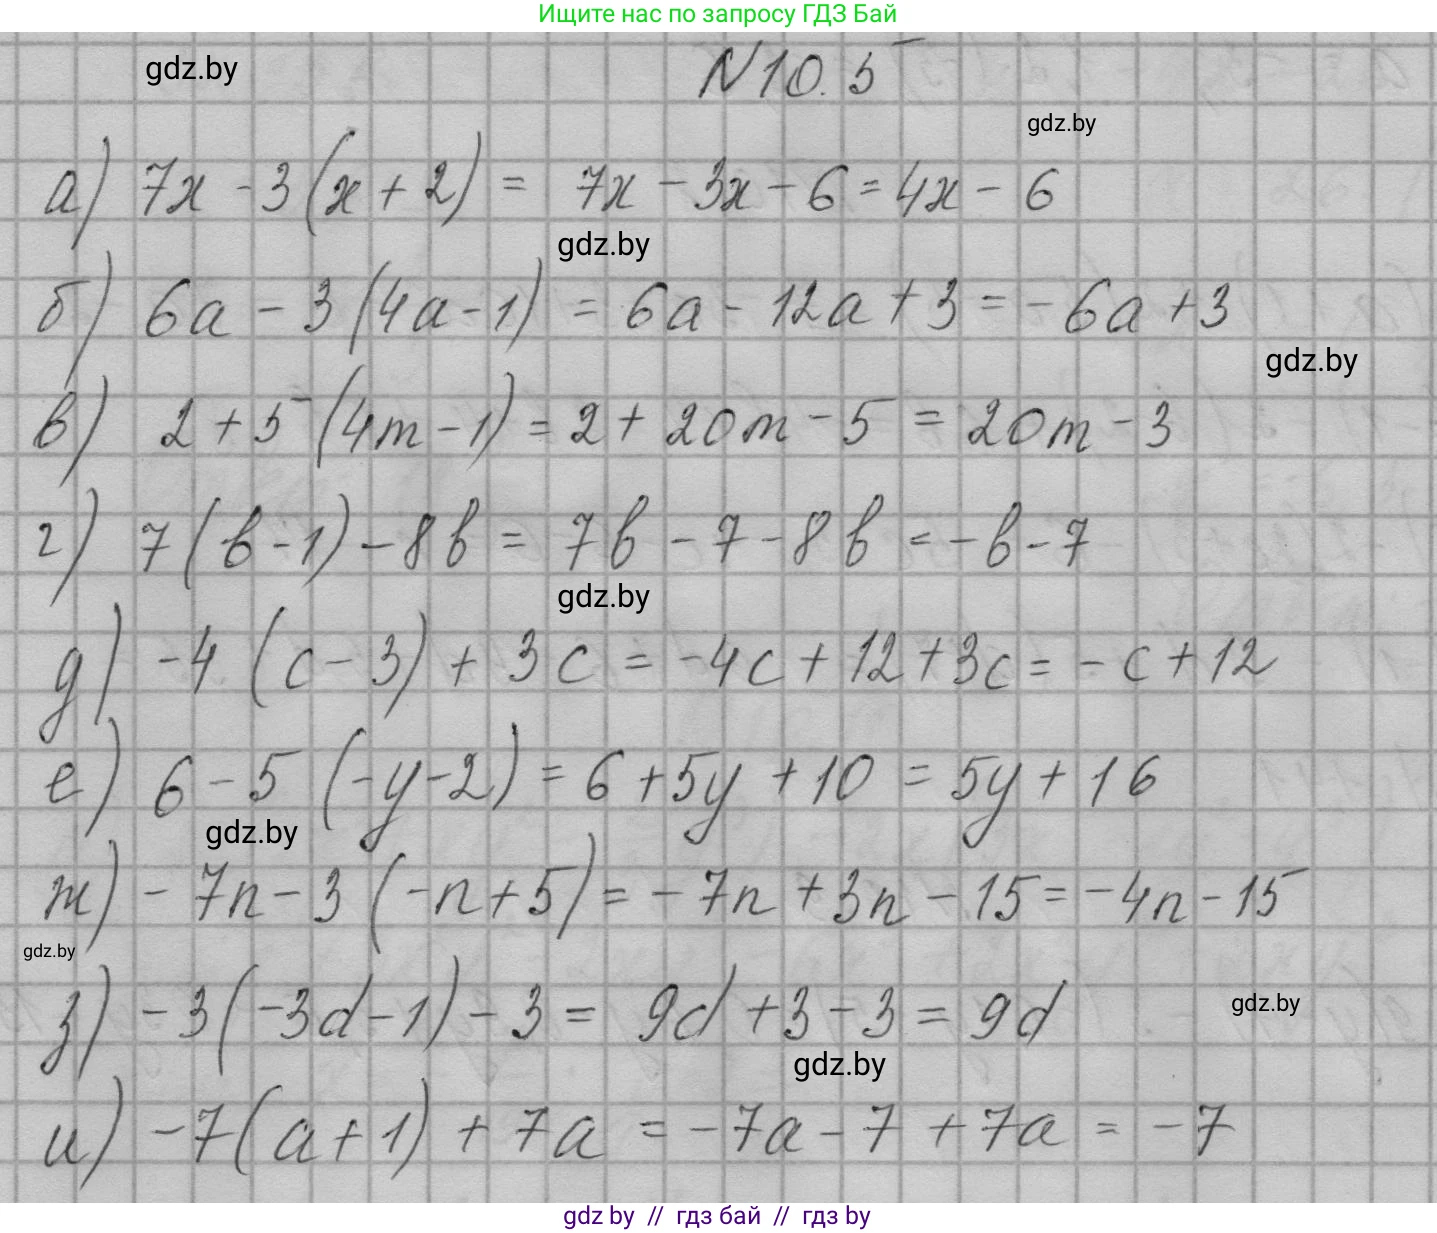 Ищите нас по запросу ГДЗ Бай
gdz.by
N10.5
gdz.by
а) 7x - 3(x + 2) = 7x - 3x - 6 = 4x - 6
gdz.by
б) 6a - 3(4a - 1) = 6a - 12a + 3 = -6a + 3
gdz.by
в) 2 + 5(4m - 1) = 2 + 20m - 5 = 20m - 3
г) 7(b - 1) - 8b = 7b - 7 - 8b = -b - 7
gdz.by
д) -4(c - 3) + 3c = -4c + 12 + 3c = -c + 12
е) 6 - 5(-y - 2) = 6 + 5y + 10 = 5y + 16
gdz.by
ж) -7n - 3(-n + 5) = -7n + 3n - 15 = -4n - 15
gdz.by
з) -3(-3d - 1) - 3 = 9d + 3 - 3 = 9d
gdz.by
gdz.by
и) -7(a + 1) + 7a = -7a - 7 + 7a = -7
gdz by // гдз бай // гдз by